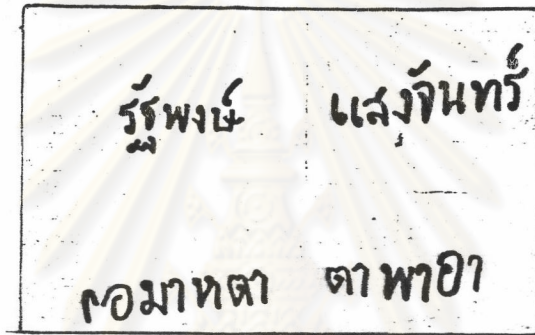 รัฐพงษ์ แสงจันทร์
รอมาหตา ตาพาอา